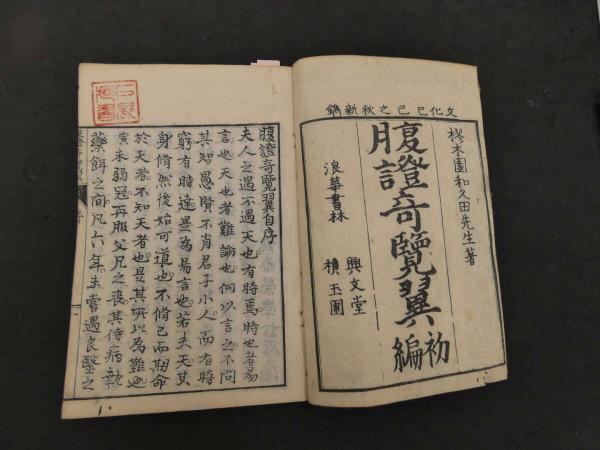 文化己巳之秋新鐫
樛木園和久田先生著
腹證奇覽翼
初編
浪華書林
興文堂
積玉圃
腹證奇覽翼自序
夫人之遇不遇天也有時焉時也者易
言也天也者難諭也何以言之不問
其知愚賢不肖君子小人而有時
窮有時達是為易言也若夫天
身脩然後始可道也不脩己而期命
於天者不知天者也是其所以為難也
寅未弱冠再服父兄之喪其侍病執
藥餌之間凡六年未嘗遇良醫之